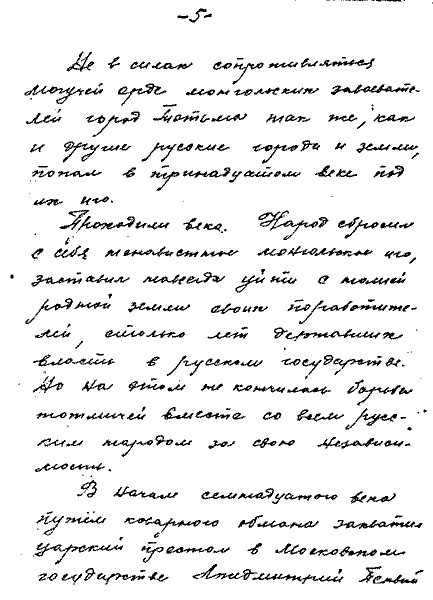 -5-
Не в силах сопротивляться
могучей орде монгольских завоевате-
лей город Тотьма так же, как
и другие русские города и земли,
попал в тринадцатом веке под
их иго.
Проходили века. Народ сбросил
с себя ненавистное монгольское иго,
заставил навсегда уйти с нашей
родной земли своих поработите-
лей, столько лет державших
власть в русском государстве.
Но на этом не кончилась борьба
тотмичей вместе со всем рус-
ским народом за свою независи-
мость.
В начале семнадцатого века
путём коварного обмана захватил
царский престол в Московском
государстве Лжедмитрий Первый